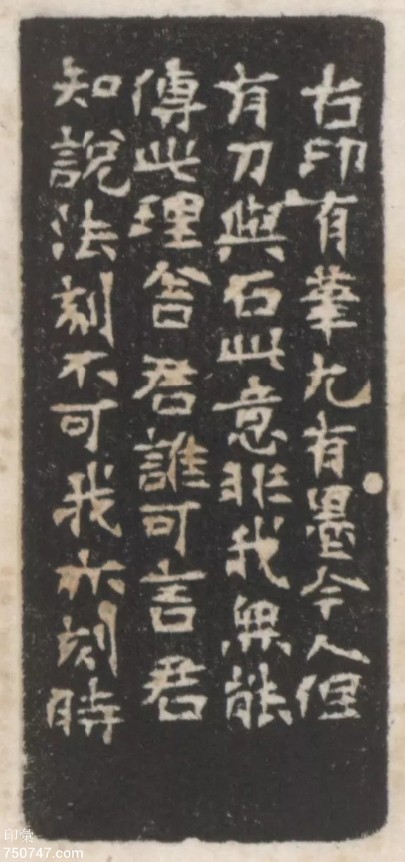 古印有筆尤有墨今人但
有刀與石此意非我無能
傳此理舍君誰可言君
知說法刻不可我亦刻時
印彙
750747.com